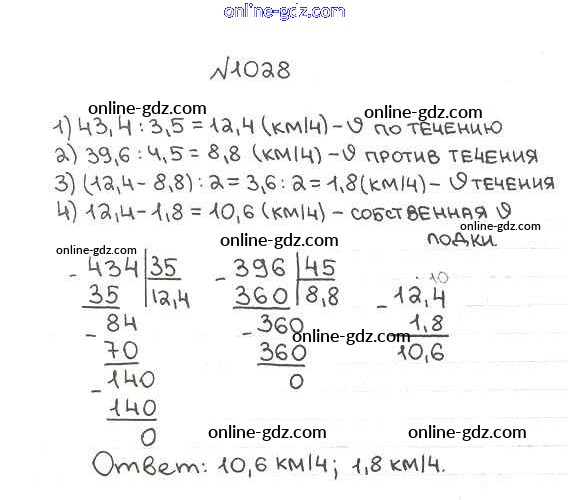 online-gdz.com
№1028
online-gdz.com online-gdz.com
1) 43,4 : 3,5 = 12,4 (км/ч) – υ по течению
2) 39,6 : 4,5 = 8,8 (км/ч) – υ против течения
online-gdz.com online-gdz.com
3) (12,4 - 8,8) : 2 = 3,6 : 2 = 1,8 (км/ч) – υ течения
4) 12,4 – 1,8 = 10,6 (км/ч) – собственная υ
online-gdz.com
лодки.
online-gdz.com online-gdz.com
- 434 35 - 396 45 10
35 12,4 360 8,8 - 12,4
- 84 - 360 1,8
online-gdz.com online-gdz.com
70 360 10,6
- 140 0
140
0
online-gdz.com online-gdz.com
Ответ: 10,6 км/ч; 1,8 км/ч.